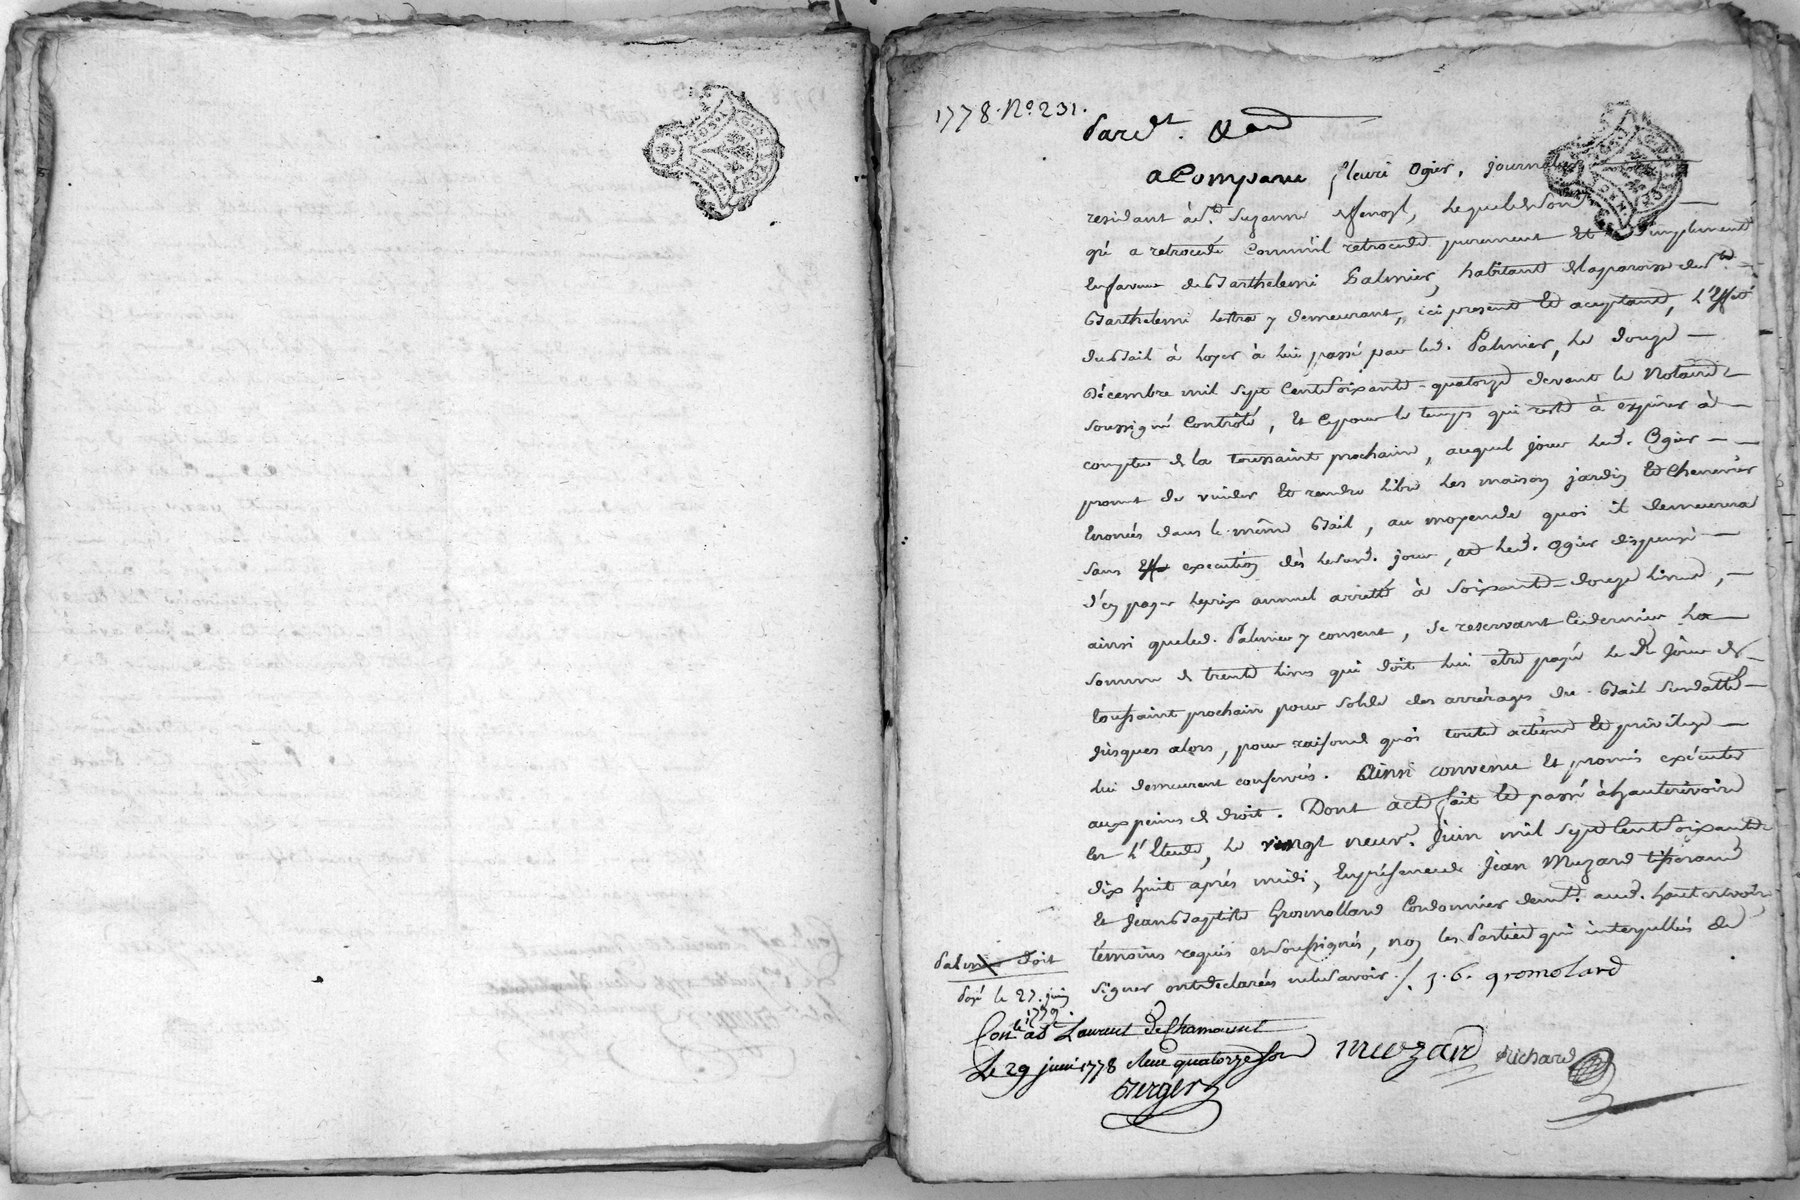 1778. N.º 231.
Pard.t &
a Comparu fleuri Ogier, journalier
residant à S.te Suzanne lequel de son
gré a retrocédé comm'il retrocede purement Et simplement
En faveur de Barthelemi Palmier, habitant de la paroisse de St.
Barthelemi Lestra y demeurant, ici present Et aceptant, L'Effet
du Bail à Loyer à lui passé par led. Palmier, Le douze
Décembre mil sept Cent soixante-quatorze devant le Notaire
soussigné Contrôlé, Et ce pour le temps qui reste à expirer à
compter de la toussaint prochaine, auquel jour led. Ogier
promet de vuider Et rendre libre Les maison jardin Et Chenevier
Enoncés dans le même Bail, au moyen de quoi il demeurera
sans execution dès led. jour, et led. Ogier dispensé
d'en payer Le prix annuel arretté à soixante-douze livres,
ainsi que led. Palmier y consent, se reservant Ce dernier La
somme de trente livres qui doit lui être payée Le d. jour de
toussaint prochain pour solde des arrérages du Bail susdatté
jusques alors, pour raison de quoi toute action Et privilege
lui demeurent conservés. Ainsi convenu Et promis exécuter
aux peines de droit. Dont acte fait Et passé à hauterivoire
En L'Etude, Le vingt neuf. Juin mil sept Cent soixante
dix huit après midi, En présence de Jean Muzard tisserand
Et Jean Baptiste Gromolland Cordonnier demt. aud. hauterivoire
témoins requis et soussignés, non les Parties qui interpellées de
signer ont déclarées ne le savoir./. j. b. gromolard
Palmier doit
posé le 27. juin
1779.
Con.lé à St Laurent de Chamousset
Le 29 juin 1778 Reçu quatorze sols
Berger
muzard
Richard